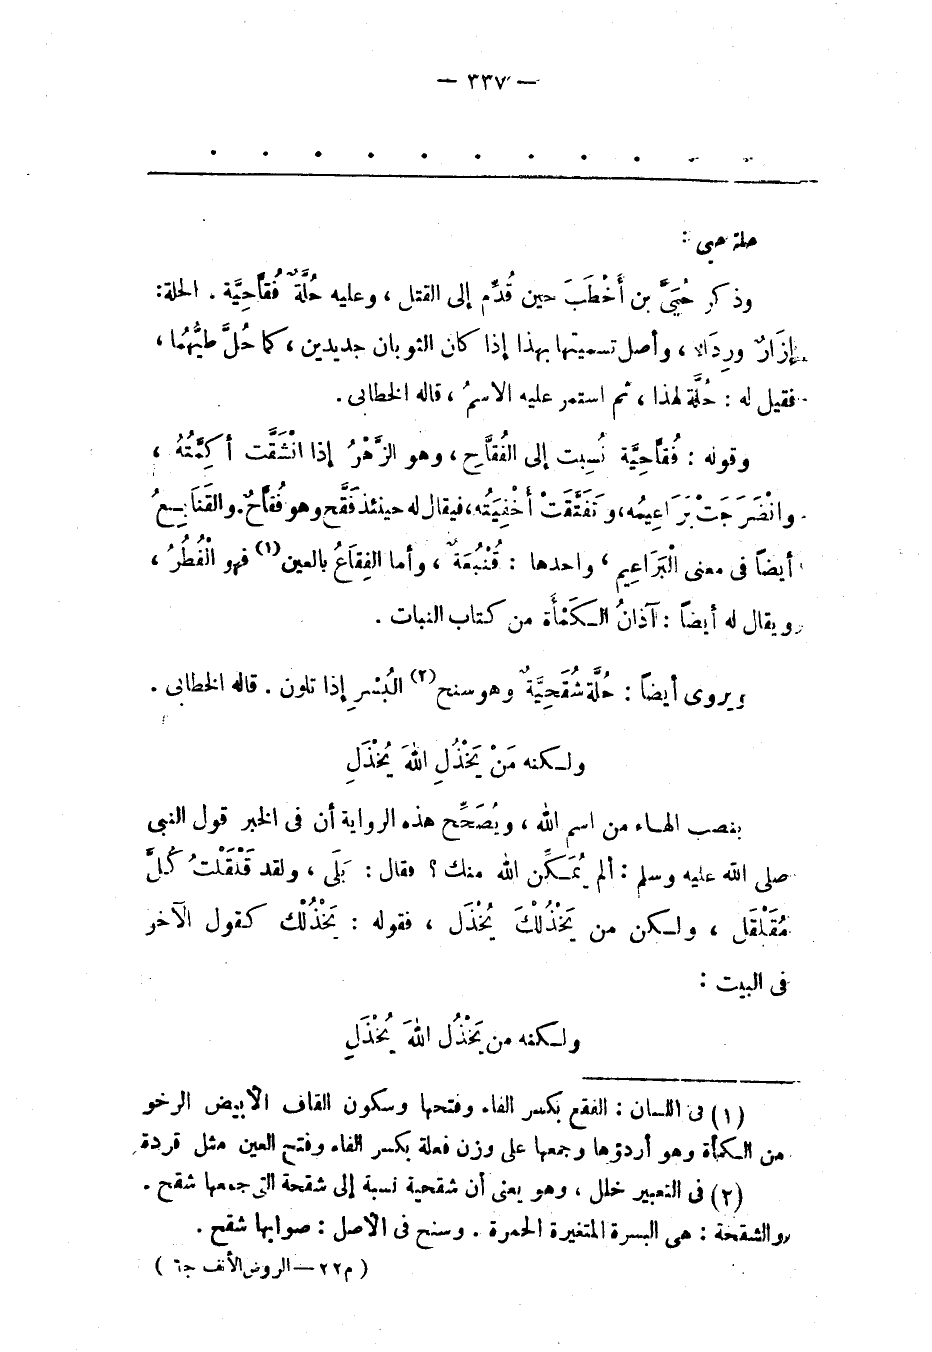 — ٣٣٧ —
حلة حيى :
وذكر حُيَيَّ بن أَخْطَبَ حين قُدِّم إلى القتل ، وعليه حُلَّةٌ فُقاَّحِيَّة . الحلة:
إزَارٌ وردَاء ، وأصل تسميتها بهذا إذا كان الثوبان جديدين ، كما حُلَّ طَيُّهُما ،
فقيل له : حُلَّة لهذا ، ثم استمر عليه الاسمُ ، قاله الخطابى .
وقوله : فُقاَّحِيَّة نُسِبت إلى الفُقاَّح ، وهو الزَّهْرُ إذا انْشَقَّت أكِمَّتُهُ ،
وانْضَرَجَتْ بَرَاعِيمُه، وتَفَتَّقَتْ أَخْفِيَتُه، فيقال له حينئذ فَقَّح وهو فُقاَّحٌ. والقَنَابِعُ
أيضاً فى معنى الْبَرَاعِيمِ ، واحدها : قُنْبُعَةٌ ، وأما الفِقاَعُ بالعين(١) فهو الْفُطُرُ ،
ويقال له أيضاً : آذانُ الكَمْأَة من كتاب النبات .
ويروى أيضاً : حُلَّة شُقَحِيَّةٌ وهو سنح(٢) البُسْرِ إذا تلون . قاله الخطابى .
ولكنه مَنْ يَخْذُلِ اللهَ يُخْذَلِ
بنصب الهاء من اسم الله ، ويُصَحِّح هذه الرواية أن فى الخبر قول النبى
صلى الله عليه وسلم : ألم يُمَكِّن الله منك ؟ فقال : بَلَى ، ولقد قَلْقَلْتُ كُلَّ
مُقَلْقَل ، ولكن من يَخْذُلْكَ يُخْذَل ، فقوله : يَخْذُلْك كقول الآخر
فى البيت :
ولكنه من يَخْذُل اللهَ يُخْذَلِ
(١) فى اللسان : الفقع بكسر الفاء وفتحها وسكون القاف الأبيض الرخو
من الكمأة وهو أردؤها وجمعها على وزن فعلة بكسر الفاء وفتح العين مثل قردة
(٢) فى التعبير خلل ، وهو يعنى أن شقحية نسبة إلى شقحة التى جمعها شقح .
والشقحة : هى البسرة المتغيرة الحمرة . وسنح فى الأصل : صوابها شقح .
( م ٢٢ — الروض الأنف ج ٦ )